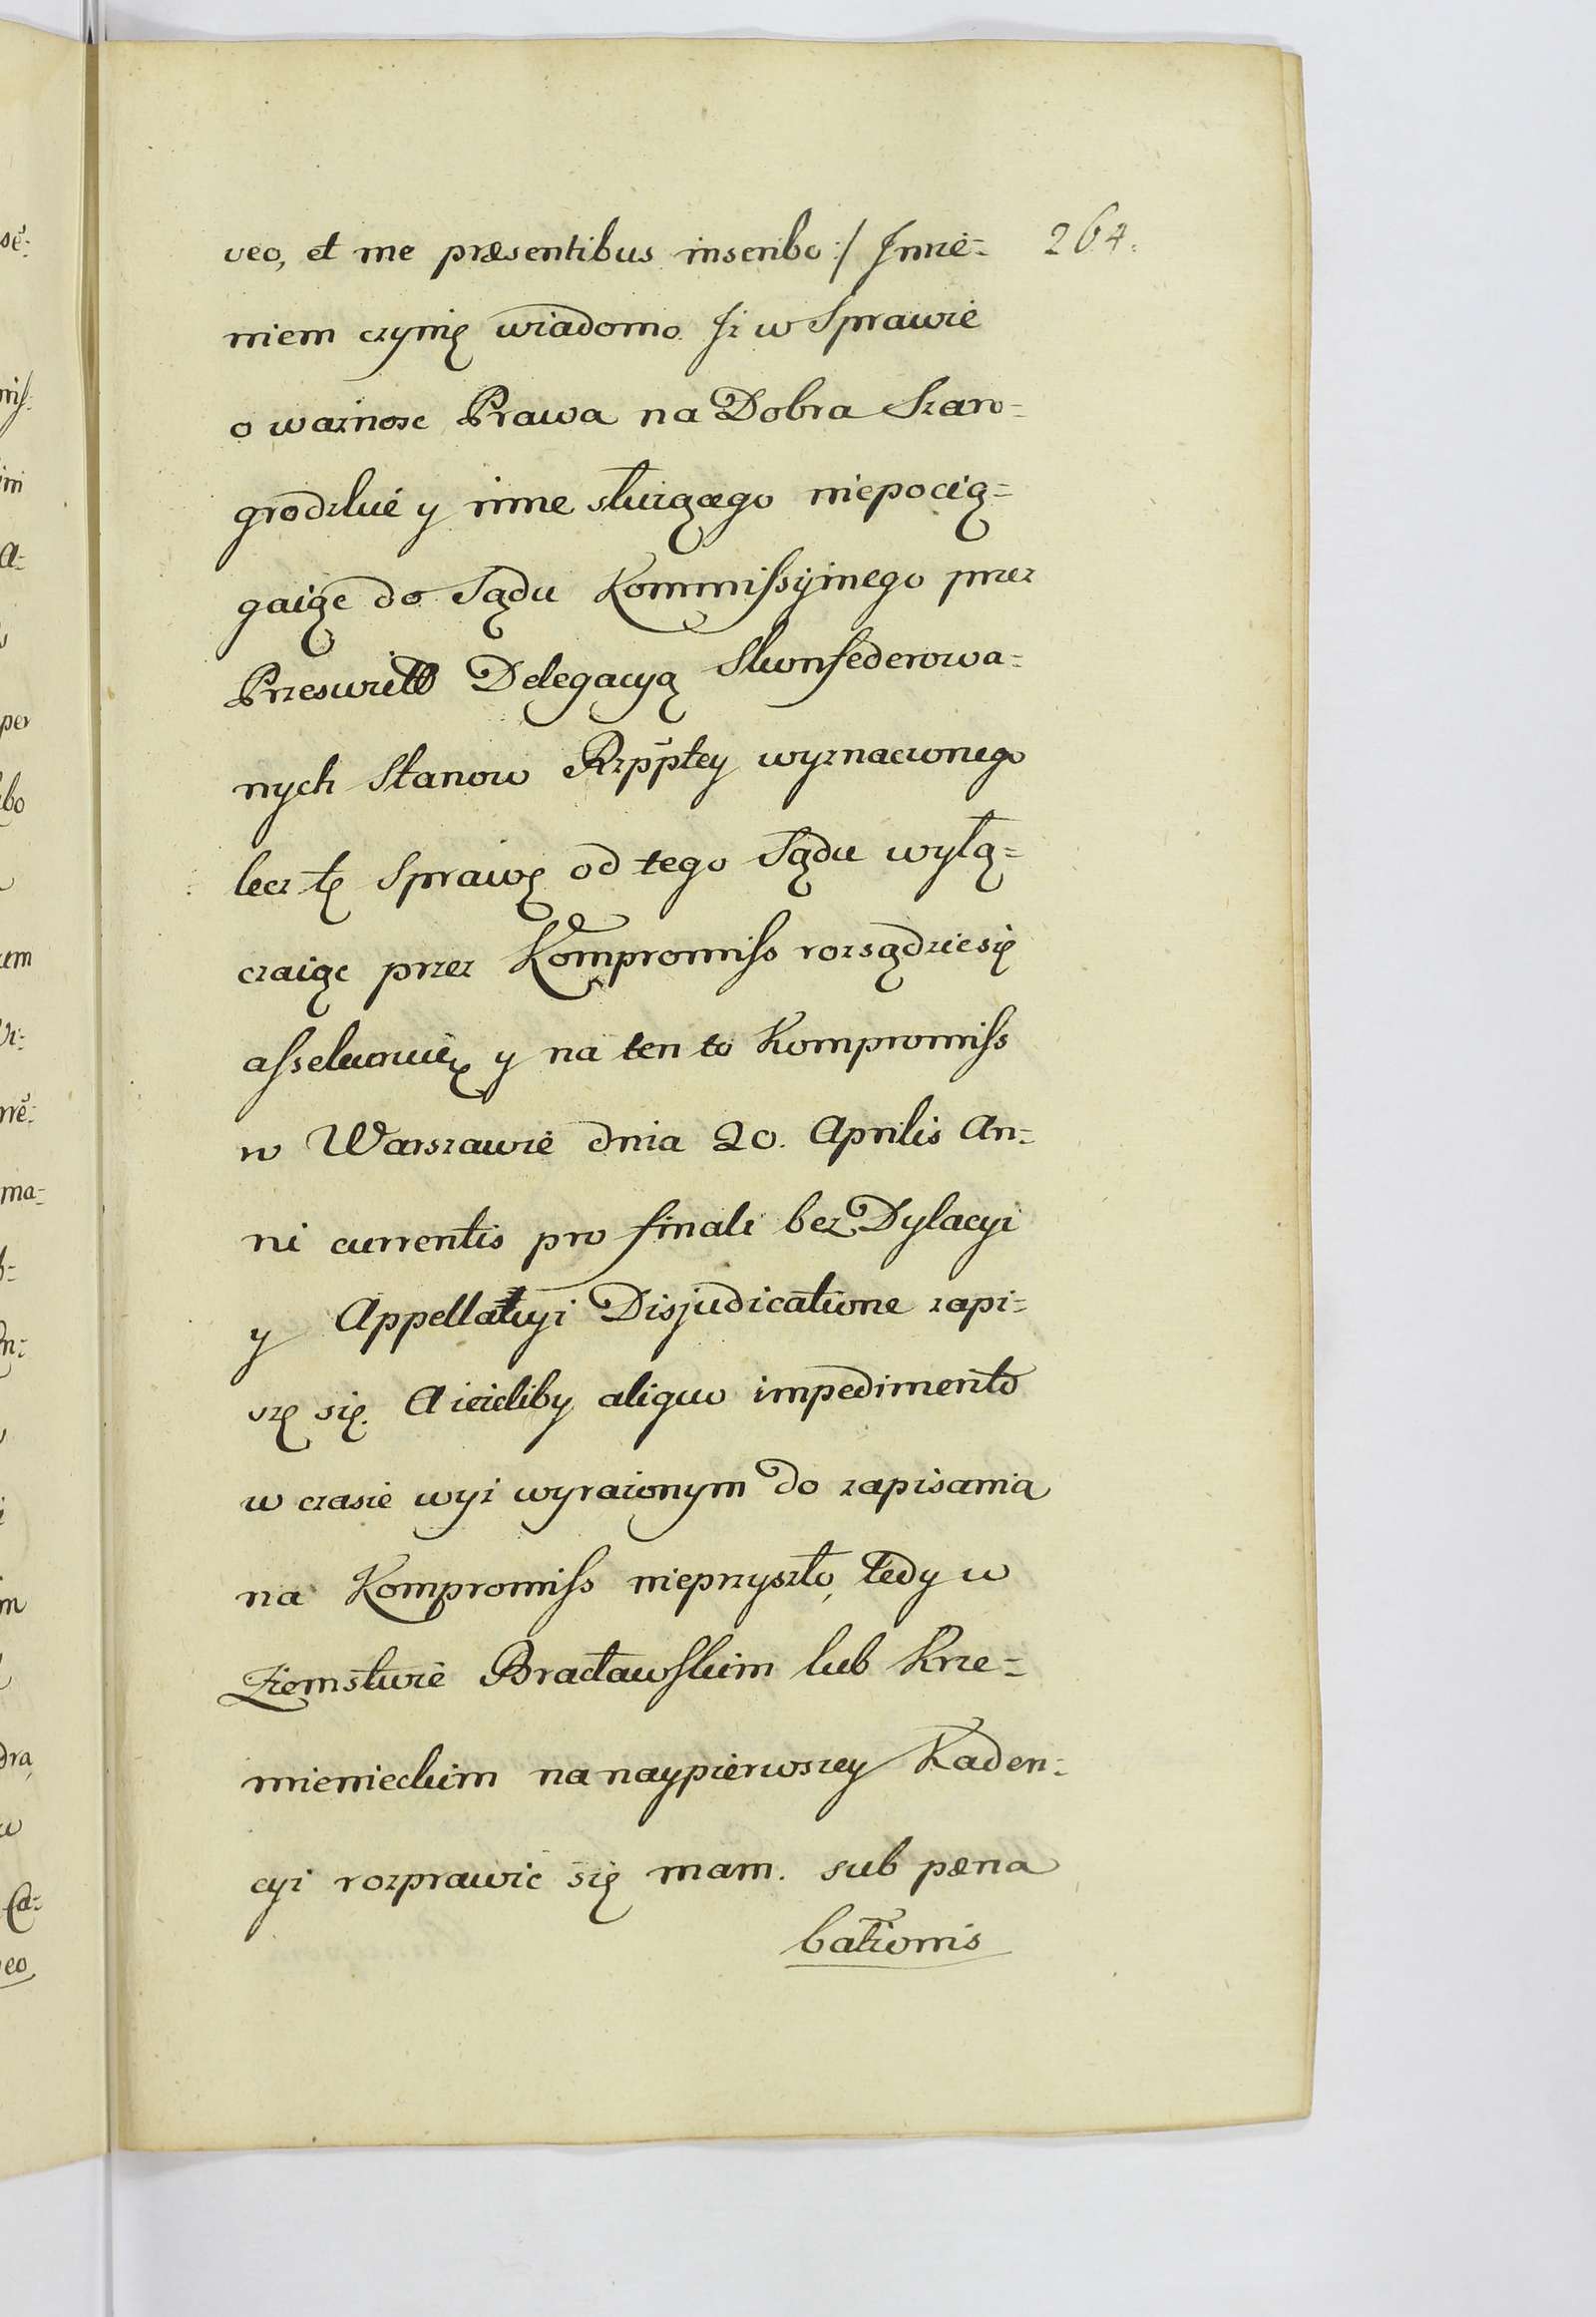 264.
veo, et me præsentibus inscribo :/ Jmie=
niem czynię wiadomo Jż w Sprawie
o ważnosc Prawa na Dobra Szaro=
grodzkie y inne służącego niepocią=
gaiąc do Sądu Kommissyinego przez
Przeswietą Delegacyą Skonfederowa=
nych Stanow Rzpptey wyznaczonego
lecz tę Sprawę od tego Sądu wyłą=
czaiąc przez Kompromiss rozsądzic się
assekuruię y na ten to Kompromiss
w Warszawie dnia 20. Aprilis An=
ni currentis pro finali bez Dylacyi
y Appellacyi Disjudicatione zapi=
szę się. A ieżeliby aliquo impedimento
w czasie wyż wyrażonym do zapisania
na Kompromiss nieprzyszło, tedy w
Ziemstwie Bracławskim lub Krze=
mienieckim na naypierwszey Kaden=
cyi rozprawic się mam. sub pæna
bationis